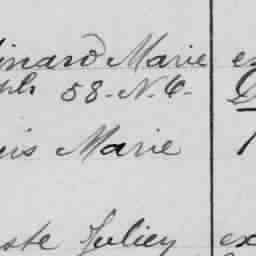 inard Marie ex
ph 58. N. C.
uis Marie
ste Juliey ex